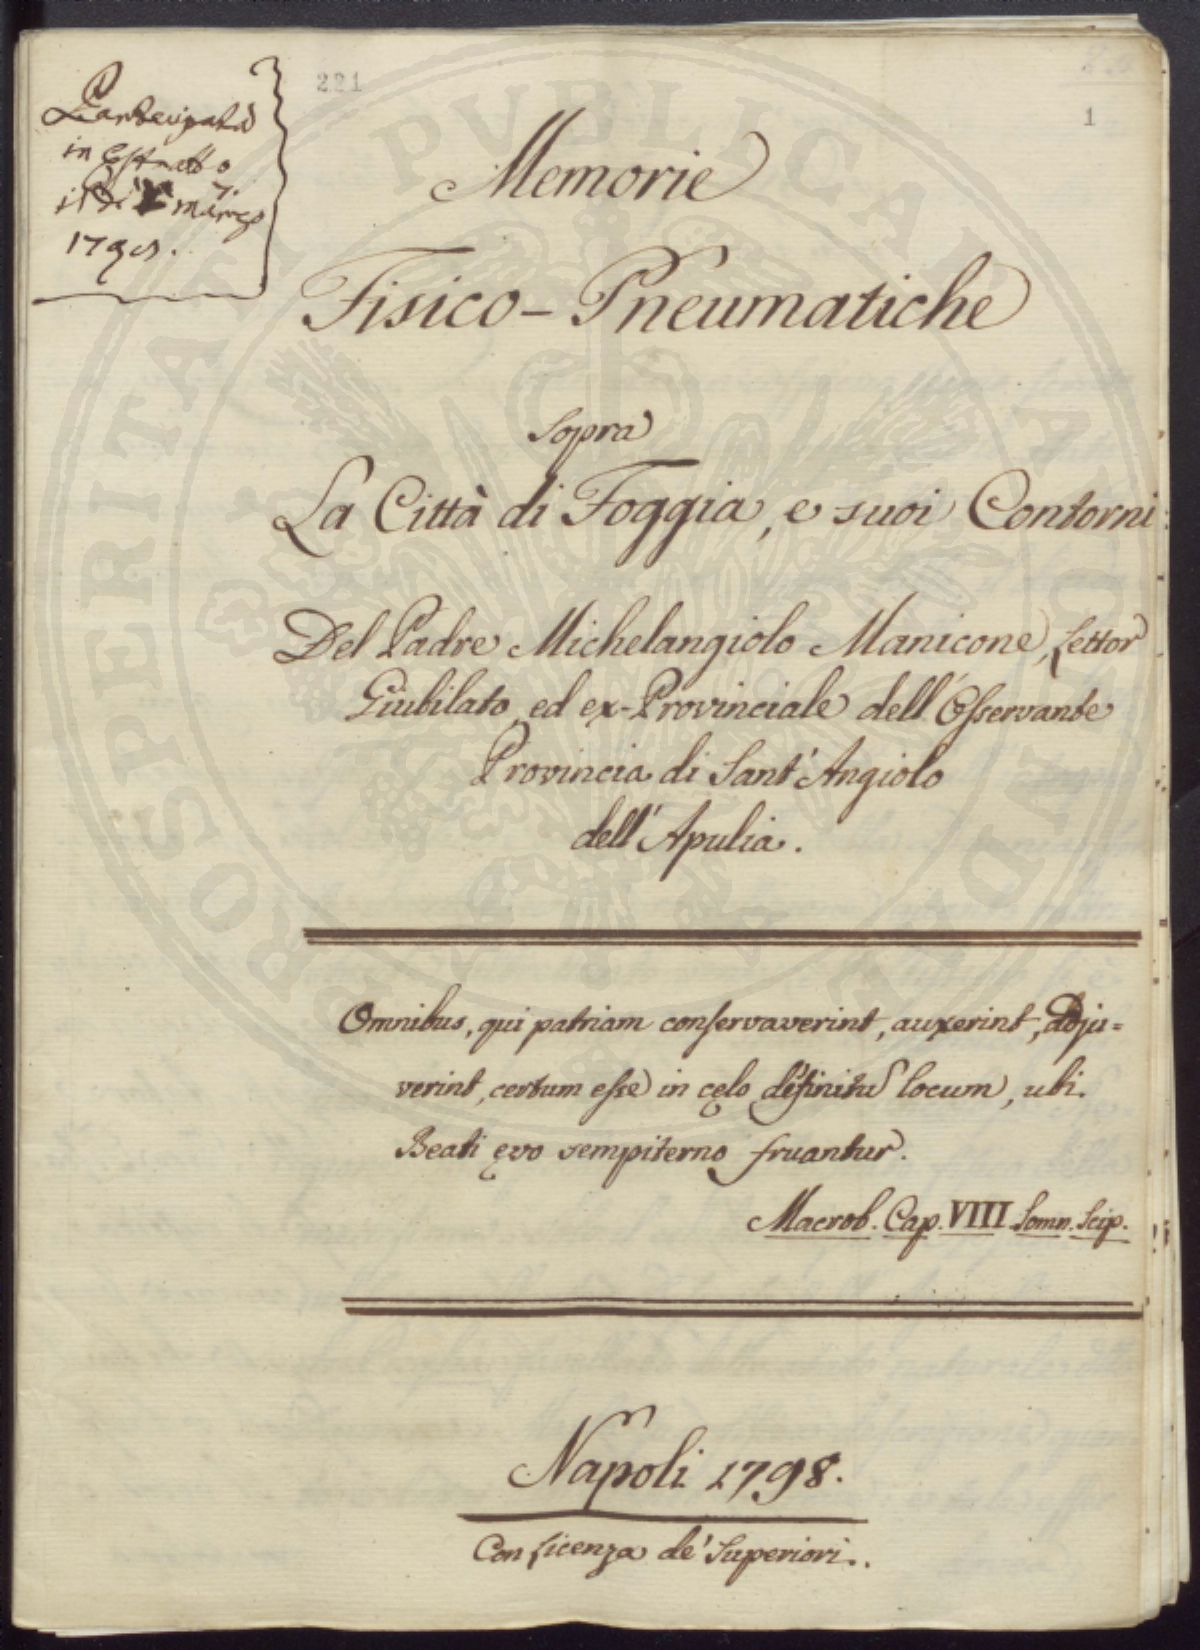 Partecipata
in Estratto
il dì 7. marzo
221
1
Memorie
Fisico-Pneumatiche
Sopra
La Città di Foggia, e suoi Contorni
Del Padre Michelangiolo Manicone, Lettor
Giubilato, ed ex-Provinciale dell'Osservante
Provincia di Sant'Angiolo
dell'Apulia.
Omnibus, qui patriam conservaverint, auxerint, adju=
verint, certum esse in cęlo definitū locum, ubi
Beati ęvo sempiterno fruantur.
Macrob. Cap. VIII Somn. Scip.
Napoli 1798.
Con licenza de' Superiori.
PROSPERITATI PUBLICAE AUGENDAE